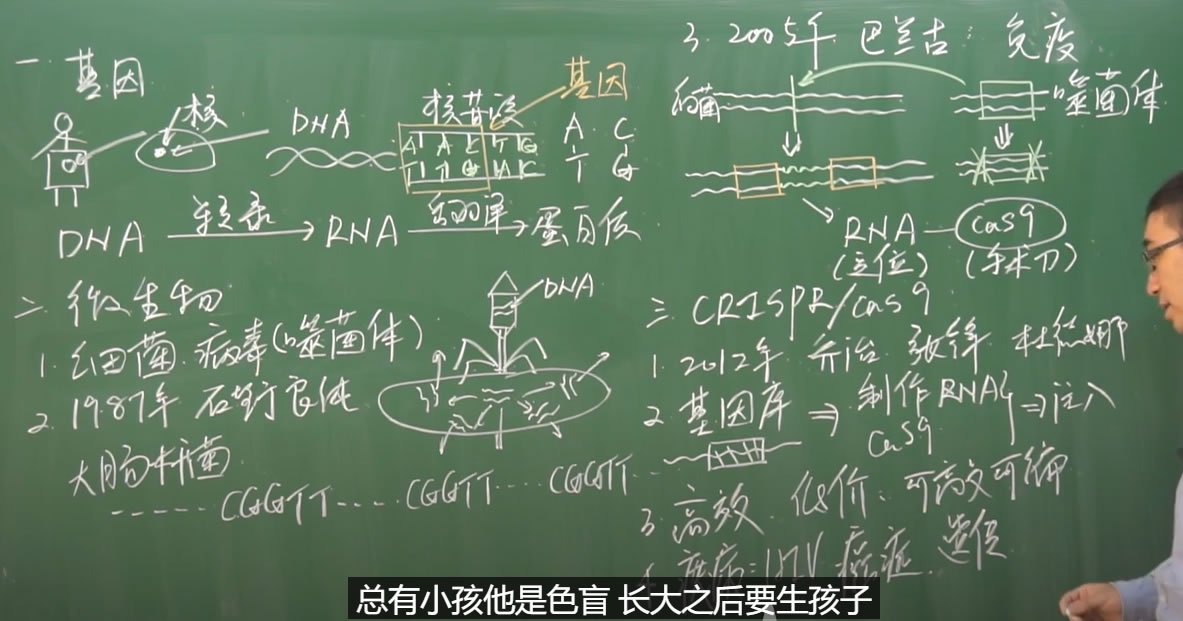 一. 基因
核
DNA
核苷酸
基因
A T A C T G
T T G A C
A C
T G
DNA 转录 RNA 翻译 蛋白质
二. 微生物
1. 细菌. 病毒(噬菌体)
DNA
2. 1987年 石野良纯
大肠杆菌
------CGGTT----CGGTT----CGGTT---
3. 2005年 巴兰古: 免疫
细菌
噬菌体
RNA — cas9
(定位) (手术刀)
三 CRISPR/cas9
1. 2012年 乔治. 张锋 杜德娜
2. 基因库 ⇒ 制作RNA ⇒注入
cas9
3. 高效. 低价.
疾病: HIV 癌症. 遗传
总有小孩他是色盲 长大之后要生孩子